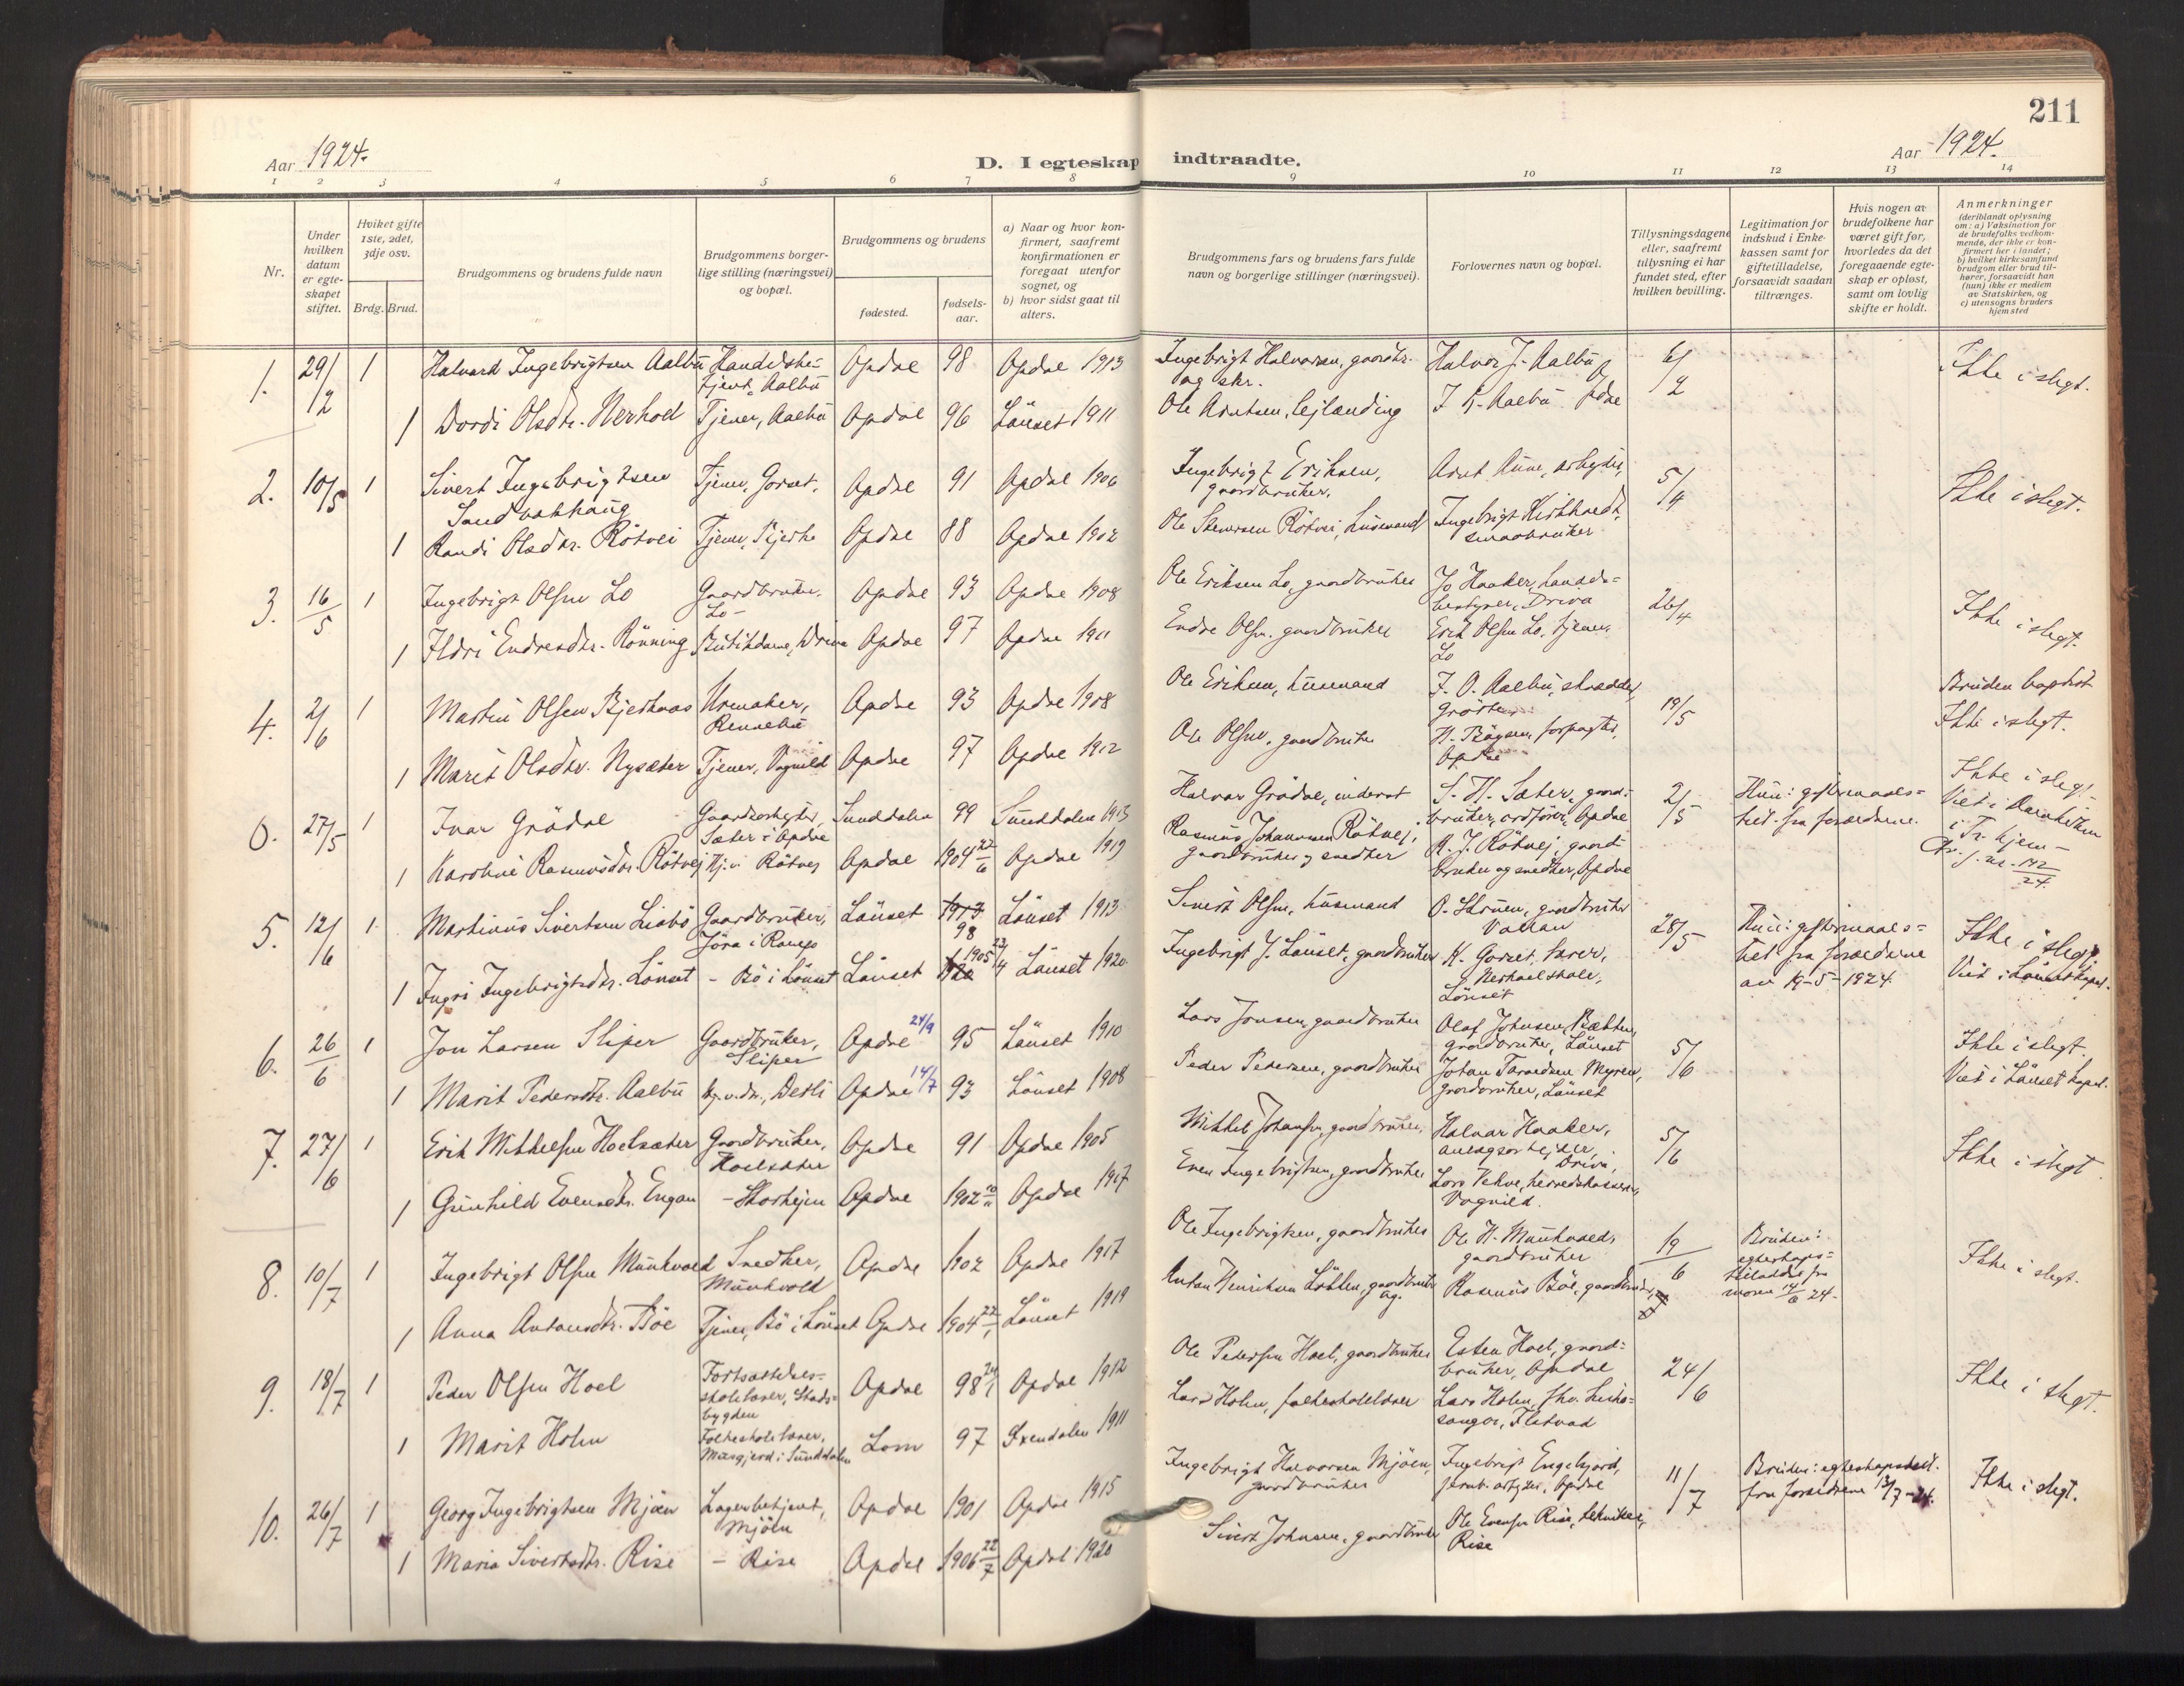 211
Aar 1924.
D. I egteskap indtraadte.
Aar 1924.
1 2 3 4 5 6 7 8 9 10 11 12 13 14
Nr.
Under hvilken datum er egteskapet stiftet.
Hvilket gifte 1ste, 2det, 3dje osv.
Brdg. Brud.
Brudgommens og brudens fulde navn
Brudgommens borgerlige stilling (næringsvei) og bopæl.
Brudgommens og brudens
fødested.
fødselsaar.
a) Naar og hvor konfirmert, saafremt konfirmationen er foregaat utenfor sognet, og
b) hvor sidst gaat til alters.
Brudgommens fars og brudens fars fulde navn og borgerlige stillinger (næringsvei).
Forlovernes navn og bopæl.
Tillysningsdagene eller, saafremt tillysning ei har fundet sted, efter hvilken bevilling.
Legitimation for indskud i Enkekassen samt for giftetilladelse, forsaavidt saadan tiltrænges.
Hvis nogen av brudefolkene har været gift før, hvorledes da det foregaaende egteskap er opløst, samt om lovlig skifte er holdt.
Anmerkninger
(deriblandt oplysning om: a) Vaksination for de brudefolks vedkommende, der ikke er konfirmert her i landet;
b) hvilket kirkesamfund brudgom eller brud tilhører, forsaavidt han (hun) ikke er medlem av Statskirken, og
c) utensogns bruders hjemsted
1. 29/2 1 Halvard Ingebrigtsen Aalbu Handelsbetjent, Aalbu Opdal 98 Opdal 1913 Ingebrigt Halvorsen, gaardbr. og skr. Halvor J. Aalbu 6/2 Ikke i slegt.
1 Dordi Olsdtr. Nerhoel Tjener, Aalbu Opdal 96 Lönset 1911 Ole Arntsen, lejlænding
2. 10/5 1 Sivert Ingebrigtsen Tjener, Gorset. Opdal 91 Opdal 1906 Ingebrigt Eriksen, gaardbruker. Arnt Aune, arbeyder, 5/4 Ikke i slegt.
1 Randi Olsdtr. Rötvei Tjener Opdal 88 Opdal 1902 Ole Rötvei, husmand Ingebrigt smaabruker
3. 16/5 1 Ingebrigt Olsen Lo Gaardbruker, Lo Opdal 93 Opdal 1908 Ole Eriksen Lo, gaardbruker Jo Haaker, Driva 26/4 Ikke i slegt.
1 Ildri Endresdtr. Rönning Butikdame, Driva Opdal 97 Opdal 1911 Endre Olsen, gaardbruker Erik Olsen Lo, tjener, Lo
4. 2/6 1 Martin Olsen Bjerkaas Urmaker, Rennebu Opdal 93 Opdal 1908 Ole Eriksen, husmand J. O. Aalbu, skrædder, 19/5 Bruden baptist Ikke i slegt.
1 Marit Olsdtr. Nysæter Tjener, Vognild Opdal 97 Opdal 1912 Ole Olsen, gaardbruker forpagter, Opdal
0. 27/5 1 Ivar Grödal Gaardsarbeyder, Sæter i Opdal Sunddalen 99 Sunddalen 1913 Halvor Grödal, inderst S. H. Sæter, gaardbruker, ordförer, Opdal 2/5 Hun: giftermaalstil. fra forældrene Ikke i slegt.
1 Karoline Rasmusdtr. Rötvej Hj. i Rötvej Opdal 1904 22/6 Opdal 1919 Rasmus Johannsen Rötvej, gaardbruker og snedker R. J. Rötvej, gaardbruker og snedker, Opdal
5. 12/6 1 Martinus Sivertsen Liabö Gaardbruker, Lönset 98 Lönset 1913 Sivert Olsen, husmand O. gaardbruker 28/5 Hun: giftermaalstil. fra forældrene av 19-5-1924 Ikke i slegt. Viet i Lönset kapel.
1 Ingri Ingebrigtsdtr. Lönset - Bö i Lönset Lönset 1905 23/4 Lönset 1920 Ingebrigt J. Lönset, gaardbruker K. Gorset, lærer, Lönset
6. 26/6 1 Jon Larsen Sliper Gaardbruker, Sliper Opdal 24/9 95 Lönset 1910 Lars Jonsen, gaardbruker Olaf Johnsen gaardbruker, Lönset 5/6 Ikke i slegt.
1 Marit Pedersdtr. Aalbu Detli Opdal 14/7 93 Lönset 1908 Peder Pedersen, gaardbruker Johan Myren, gaardbruker, Lönset Viet i Lönset kapel.
7. 27/6 1 Erik Mikkelsen Hoelsæter Gaardbruker, Hoelsæter Opdal 91 Opdal 1905 Mikkel Johansen, gaardbruker, Halvor Haaker, Driva, 5/6 Ikke i slegt.
1 Gunhild Evensdtr. Engan - Opdal 1902 Opdal 1917 Even Ingebrigtsen, gaardbruker Lars Vekve, herredskasserer, Vognild.
8. 10/7 1 Ingebrigt Olsen Munkvold Snedker, Munkvold Opdal 1902 Opdal 1917 Ole Ingebrigtsen, gaardbruker Ole H. Munkvold, gaardbruker 19/6 Bruden: egteskapstilladelse fra moren 24. Ikke i slegt.
1 Anna Antonsdtr. Böe Tjener, Bö i Lönset Opdal 1904 22/1 Lönset 1919 Anton Henriksen gaardbruker Rasmus Böe, gaardbruker
9. 18/7 1 Peder Olsen Hoel Fortsættelsesskolelærer, Stadsbygden Opdal 98 Opdal 1912 Ole Pedersen Hoel, gaardbruker Esten Hoel, gaardbruker, Opdal 24/6 Ikke i slegt.
1 Marit Holm Folkeskolelærer, Musgjerd i Sunddalen Lom 97 Öxendalen 1911 Lars Holm, folkeskolelærer Lars Holm, fhv. kirkesanger, Flatvad
10. 26/7 1 Georg Ingebrigtsen Mjöen Lagerbetjent, Mjöen Opdal 1901 Opdal 1915 Ingebrigt Halvorsen Mjöen, gaardbruker Ingebrigt Engelsjord, jernb.arbeyder, Opdal 11/7 Bruden: egteskapstill. fra forældrene 13/7-24. Ikke i slegt.
1 Maria Sivertsdtr. Rise - Rise Opdal 1906 22/7 Opdal 1920 Sivert Johnsen, gaardbruker Ole Evensen Rise, tekniker, Rise